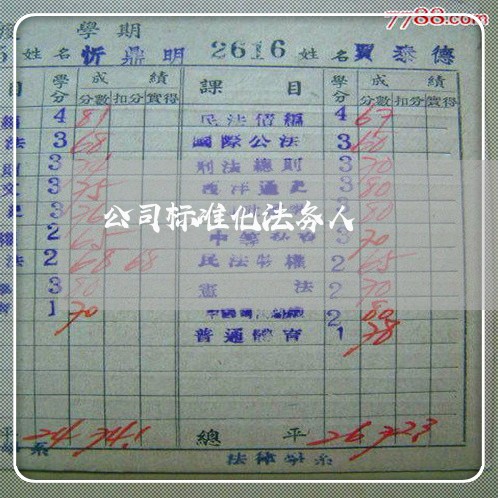 7788.com
學期
姓名 忻鼎明 2616 姓名 賈泰德
目 學分 成績 課目 學分 成績
分數 扣分 實得 分數 扣分 實得
4 81 民法債編 4 67
法 3 68 國際公法 3 60
3 刑法總則 3 70
3 75 西洋通史 3 80
3 3 80
公司标准化法务人
2 65 3 70
法 2 68 68 民法物權 2 65
3 80 憲法 2 70
1 70 2 80
普通體育 1 78
平 24 74.1 總平 26 72.3
系 法律學系